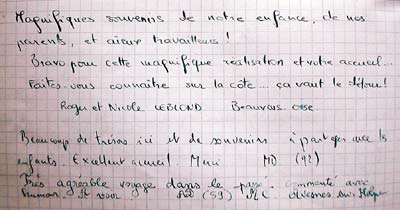 Magnifiques souvenirs de notre enfance, de nos
parents, et aïeux travailleurs !
Bravo pour cette magnifique réalisation et votre accueil...
Faites-vous connaître sur la côte... ça vaut le détour !
Roger et Nicole LEBLOND Beauvais. Oise.
Beaucoup de trésors ici et de souvenirs à partager avec les
enfants. Excellent accueil. Merci MD (92)
Très agréable voyage dans le passé commenté avec
humour. (59) Avesnes sur Helpe